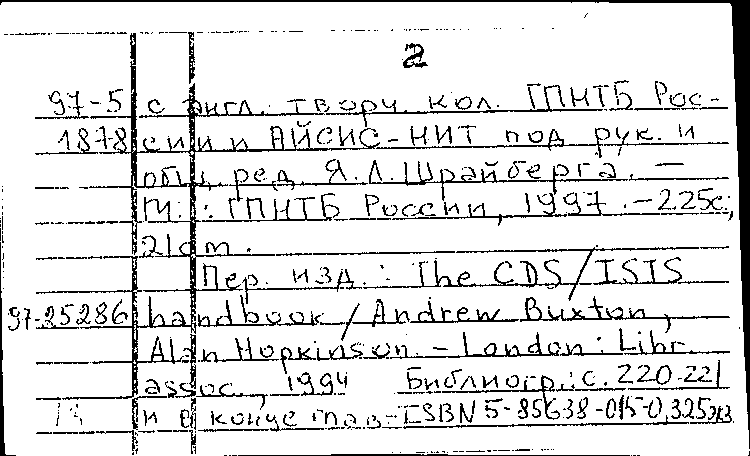 2
97-5 с англ. творч. кол. ГПНТБ Рос-
1878 сии и АЙСИС-НИТ под рук. и
общ. ред. Я.Л. Шрайберга. —
М. : ГПНТБ России, 1997. - 225с;
21cm.
Пер. изд. : The CDS/ISIS
97-25286 handbook / Andrew Buxton,
Alan Hopkinson. - London : Libr.
assoc., 1994 Библиогр.: с. 220-221
и в конце глав - ISBN 5-85638-015-0, 325экз